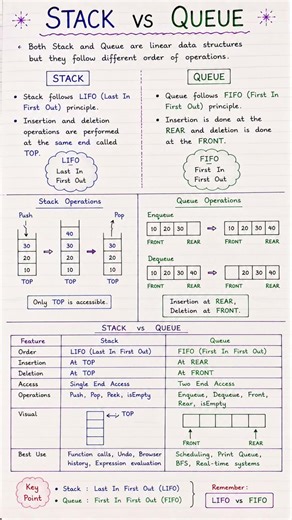 STACK vs QUEUE
• Both Stack and Queue are linear data structures
but they follow different order of operations.
STACK
• Stack follows LIFO (Last In
First Out) principle.
• Insertion and deletion
operations are performed
at the same end called
TOP.
LIFO
Last In
First Out
QUEUE
• Queue follows FIFO (First In
First Out) principle.
• Insertion is done at the
REAR and deletion is done
at the FRONT.
FIFO
First In
First Out
Stack Operations
Push
Pop
40
30 30 30
20 20 20
10 10 10
TOP TOP TOP
Only TOP is accessible.
Queue Operations
Enqueue
10 20 30
10 20 30 40
FRONT REAR FRONT REAR
Dequeue
10 20 30 40
20 30 40
FRONT REAR FRONT REAR
Insertion at REAR,
Deletion at FRONT.
STACK vs QUEUE
Feature Stack Queue
Order LIFO (Last In First Out) FIFO (First In First Out)
Insertion At TOP At REAR
Deletion At TOP At FRONT
Access Single End Access Two End Access
Operations Push, Pop, Peek, isEmpty Enqueue, Dequeue, Front,
Rear, isEmpty
Visual TOP
FRONT REAR
Best Use Function calls, Undo, Browser
history, Expression evaluation
Scheduling, Print Queue,
BFS, Real-time systems
Key
Point
• Stack : Last In First Out (LIFO)
• Queue : First In First Out (FIFO)
Remember :
LIFO vs FIFO